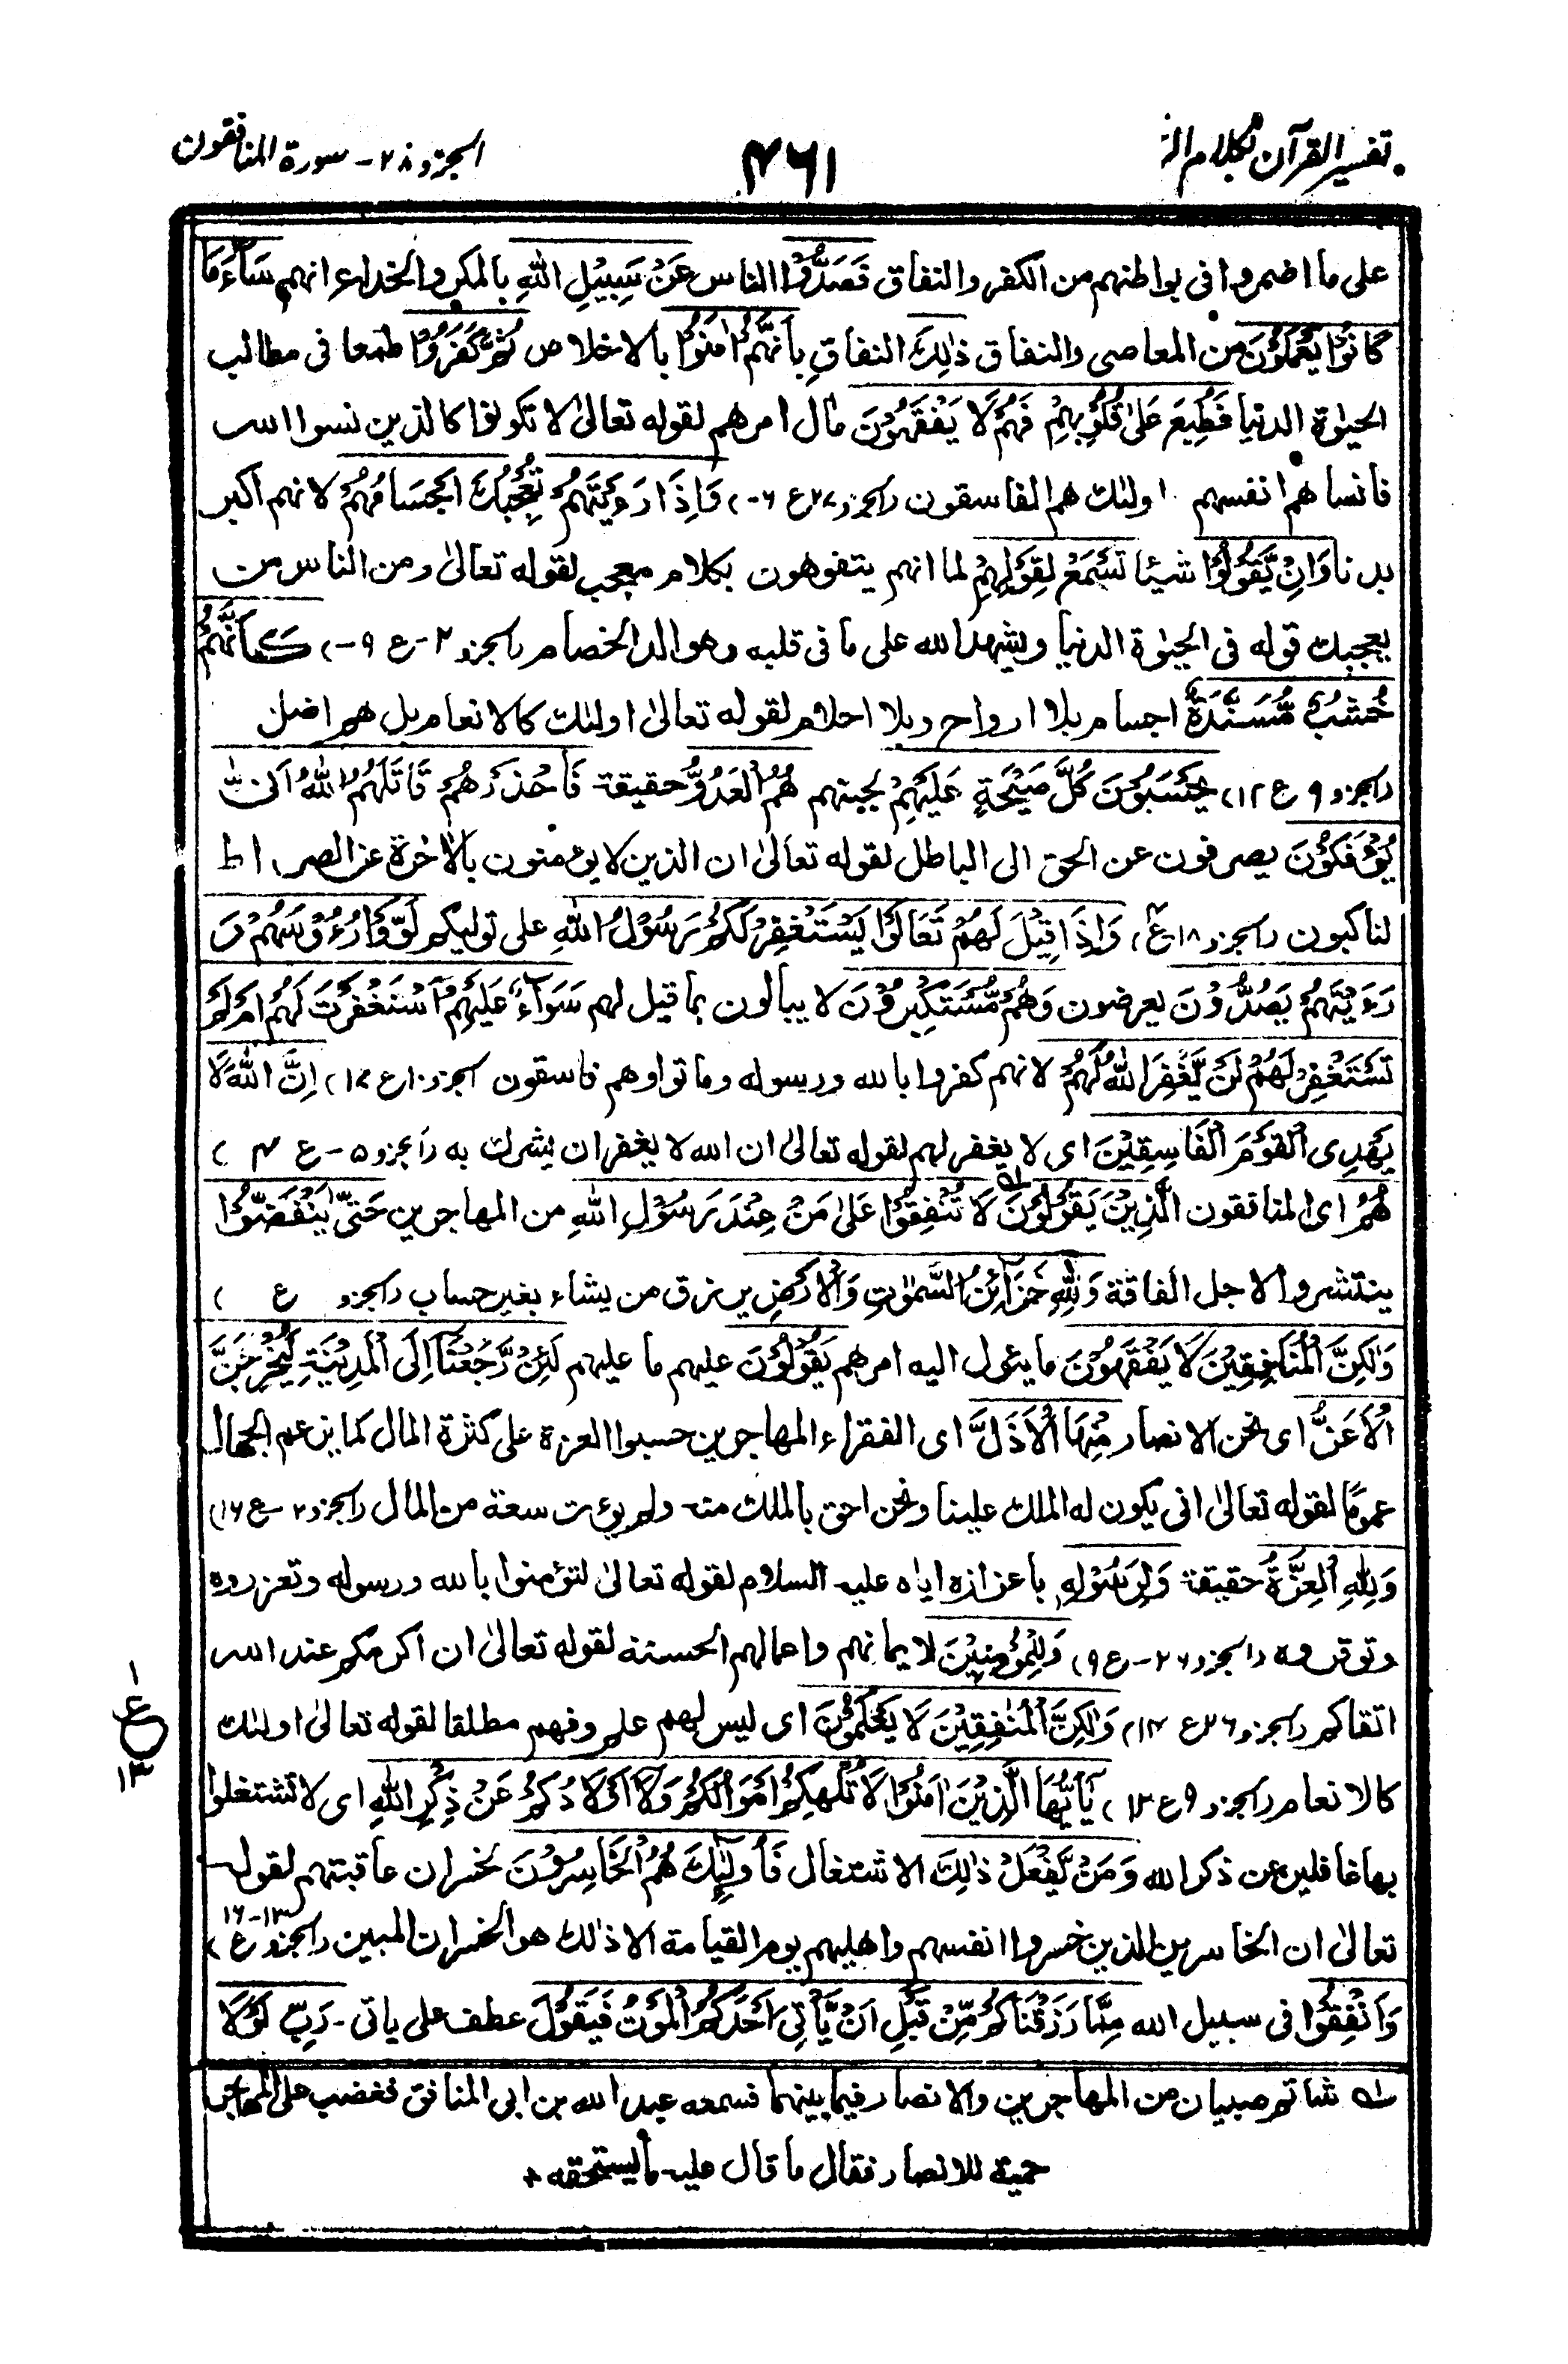 تفسير القرآن بكلام الر
۴۶۱
الجزو ۲۸ - سورة المنافقون
على ما اضمروا فى بواطنهم من الكفر والنفاق فَصَدُّوْا الناس عَنْ سَبِيْلِ اللّٰهِ بالمكر والخداع انهم سَآءَ مَا
كَانُوْا يَعْمَلُوْنَ من المعاصى والنفاق ذٰلِكَ النفاق بِاَنَّهُمْ اٰمَنُوْا بالاخلاص ثُمَّ كَفَرُوْا طمعا فى مطالب
الحيٰوة الدنيا فَطُبِعَ عَلٰى قُلُوْبِهِمْ فَهُمْ لَا يَفْقَهُوْنَ مآل امرهم لقوله تعالىٰ لا تكونوا كالذين نسوا الله
فانساهم انفسهم اولئك هم الفاسقون (الجزو ۲۸ ع ۶-) وَاِذَا رَءَيْتَهُمْ تُعْجِبُكَ اَجْسَامُهُمْ لانهم اكبر
بدنا وَاِنْ يَّقُوْلُوْا شيئا تَسْمَعْ لِقَوْلِهِمْ لما انهم يتفوهون بكلام معجب لقوله تعالىٰ ومن الناس من
يعجبك قوله فى الحيٰوة الدنيا ويشهد الله على ما فى قلبه وهو الد الخصام (الجزو ۲- ع ۹-) كَاَنَّهُمْ
خُشُبٌ مُّسَنَّدَةٌ اجسام بلا ارواح وبلا احلام لقوله تعالىٰ اولئك كالانعام بل هم اضل
(الجزو ۹ ع ۱۲) يَحْسَبُوْنَ كُلَّ صَيْحَةٍ عَلَيْهِمْ لجبنهم هُمُ الْعَدُوُّ حقيقة فَاحْذَرْهُمْ قَاتَلَهُمُ اللّٰهُ اَنّٰى
يُؤْفَكُوْنَ يصرفون عن الحق الى الباطل لقوله تعالىٰ ان الذين لا يؤمنون بالاٰخرة عن الصراط
لناكبون (الجزو ۱۸ ع ۴) وَاِذَا قِيْلَ لَهُمْ تَعَالَوْا يَسْتَغْفِرْ لَكُمْ رَسُوْلُ اللّٰهِ على توليكم لَوَّوْا رُءُوْسَهُمْ وَ
رَءَيْتَهُمْ يَصُدُّوْنَ يعرضون وَهُمْ مُّسْتَكْبِرُوْنَ لا يبالون بما قيل لهم سَوَآءٌ عَلَيْهِمْ اَسْتَغْفَرْتَ لَهُمْ اَمْ لَمْ
تَسْتَغْفِرْ لَهُمْ لَنْ يَّغْفِرَ اللّٰهُ لَهُمْ لانهم كفروا بالله ورسوله وماتوا وهم فاسقون (الجزو ۱۰ ع ۱۷) اِنَّ اللّٰهَ لَا
يَهْدِى الْقَوْمَ الْفَاسِقِيْنَ اى لا يغفر لهم لقوله تعالىٰ ان الله لا يغفر ان يشرك به (الجزو ۵- ع ۴ )
هُمُ اى المنافقون الَّذِيْنَ يَقُوْلُوْنَ لَا تُنْفِقُوْا عَلٰى مَنْ عِنْدَ رَسُوْلِ اللّٰهِ من المهاجرين حَتّٰى يَنْفَضُّوْا
ينتشروا لاجل الفاقة وَلِلّٰهِ خَزَآئِنُ السَّمٰوٰتِ وَالْاَرْضِ يرزق من يشاء بغير حساب (الجزو ع )
وَلٰكِنَّ الْمُنَافِقِيْنَ لَا يَفْقَهُوْنَ ما يئول اليه امرهم يَقُوْلُوْنَ عليهم ما عليهم لَئِنْ رَّجَعْنَا اِلَى الْمَدِيْنَةِ لَيُخْرِجَنَّ
الْاَعَزُّ اى نحن الانصار مِنْهَا الْاَذَلَّ اى الفقراء المهاجرين حسبوا العزة على كثرة المال كما يزعم الجهال
عموما لقوله تعالىٰ انى يكون له الملك علينا ونحن احق بالملك منه ولم يؤت سعة من المال (الجزو ۲- ع ۱۶)
وَلِلّٰهِ الْعِزَّةُ حقيقة وَلِرَسُوْلِهٖ باعزازه اياه عليه السلام لقوله تعالىٰ لتؤمنوا بالله ورسوله وتعزروه
وتوقروه (الجزو ۲۶- ع ۹) وَلِلْمُؤْمِنِيْنَ لايمانهم واعمالهم الحسنة لقوله تعالىٰ ان اكرمكم عند الله
اتقاكم (الجزو ۲۶ ع ۱۴) وَلٰكِنَّ الْمُنٰفِقِيْنَ لَا يَعْلَمُوْنَ اى ليس لهم علم وفهم مطلقا لقوله تعالىٰ اولئك
كالانعام (الجزو ۹ ع ۱۲) يٰٓاَيُّهَا الَّذِيْنَ اٰمَنُوْا لَا تُلْهِكُمْ اَمْوَالُكُمْ وَلَا اَوْلَادُكُمْ عَنْ ذِكْرِ اللّٰهِ اى لا تشتغلوا
بها غافلين عن ذكر الله وَمَنْ يَّفْعَلْ ذٰلِكَ الاشتغال فَاُولٰٓئِكَ هُمُ الْخَاسِرُوْنَ لخسران عاقبتهم لقوله
تعالىٰ ان الخاسرين الذين خسروا انفسهم واهليهم يوم القيامة الا ذلك هو الخسران المبين (الجزو ع ۱۳-۱۶)
وَاَنْفِقُوْا فى سبيل الله مِمَّا رَزَقْنَاكُمْ مِّنْ قَبْلِ اَنْ يَّاْتِىَ اَحَدَكُمُ الْمَوْتُ فَيَقُوْلَ عطف على ياتى - رَبِّ لَوْلَا
۱ ع ۱۳
له شاتم صبيان من المهاجرين والانصار فيما بينهما فسمعه عبد الله بن ابى المنافق فغضب على المهاجر
حمية للانصار فقال ما قال عليه ما يستحقه +